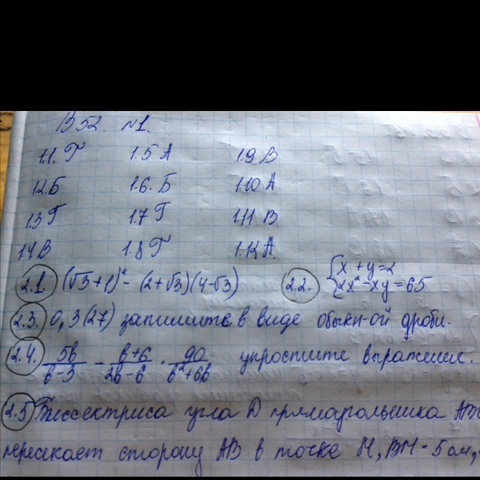 В52. №1.
1.1. Г 1.5 А 1.9 В
1.2. Б 1.6. Б 1.10 А
1.3 Г 1.7 Г 1.11 В
1.4 В 1.8 Г 1.12 А.
2.1. (√3+1)² - (2+√3)(4-√3) 2.2. {x+y=2 2x²-xy=65
2.3. 0,3(27) запишите в виде обык-ой дроби.
2.4. 5b/(b-3) - (b+6)/(2b-6) · 90/(b²+6b) упростите выражение.
2.5 Биссектриса угла D прямоугольника AB
пересекает сторону AB в точке М, BM-5 см,